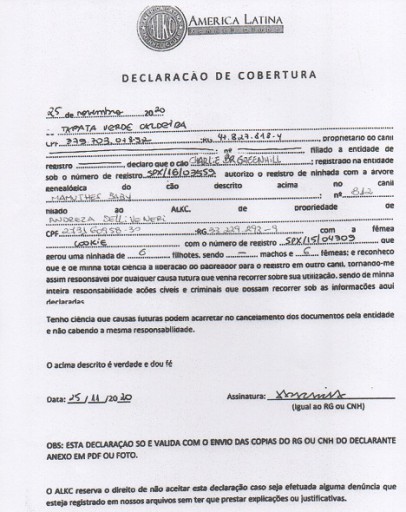 ALKC
AMERICA LATINA
DECLARAÇAO DE COBERTURA
25 de novembro 2020
VERDE
CPF 379.703.018-32 RG 44.827.818-4 proprietario do canil
nº filiado a entidade de
registro , declaro que o cão CHARLIE BR GREENHILL ; registrado na entidade
sob o número de registro SPX/16/03559 autorizo o registro de ninhada com a arvore
genealógica do cão descrito acima no canil
BABY nº 812
filiado ao ALKC. de propriedade de
ANDREZA
CPF -RG 43 229 293-9 com a fêmea
COOKIE com o número de registro SPX/15/04909 que
gerou uma ninhada de 6 filhotes, sendo — machos e 6 fêmeas; e reconheço
que e de minha total ciência a liberação do padreador para o registro em outro canil, tornando-me
assim responsável por qualquer causa futura que venha recorrer sobre sua utilização, sendo de minha
inteira responsabilidade ações cíveis e criminais que possam recorrer sob as informações aqui
declaradas
Tenho ciência que causas futuras podem acarretar no cancelamento dos documentos pela entidade
e não cabendo a mesma responsabilidade.
O acima descrito é verdade e dou fé
Data: 25/11/2020 Assinatura:
(igual ao RG ou CNH)
OBS: ESTA DECLARAÇAO SO E VALIDA COM O ENVIO DAS COPIAS DO RG OU CNH DO DECLARANTE
ANEXO EM PDF OU FOTO.
O ALKC reserva o direito de não aceitar esta declaração caso seja efetuada alguma denúncia que
esteja registrado em nossos arquivos sem ter que prestar explicações ou justificativas.